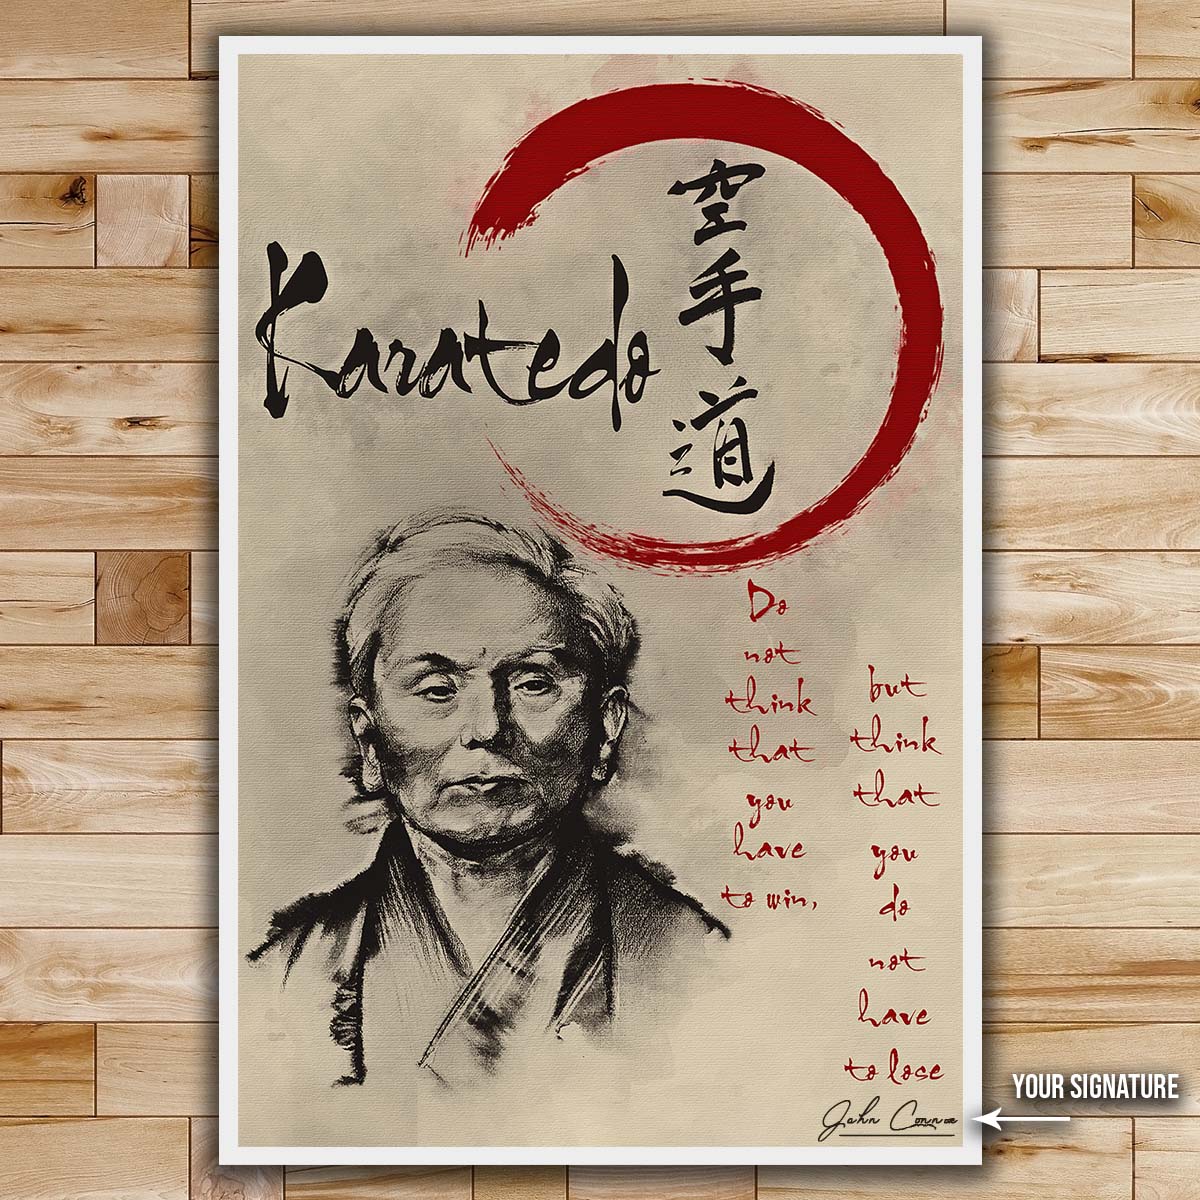 Karatedo
空
手
道
Do
not
think
that
you
have
to win,
but
think
that
you
do
not
have
to lose
John Connor
YOUR SIGNATURE